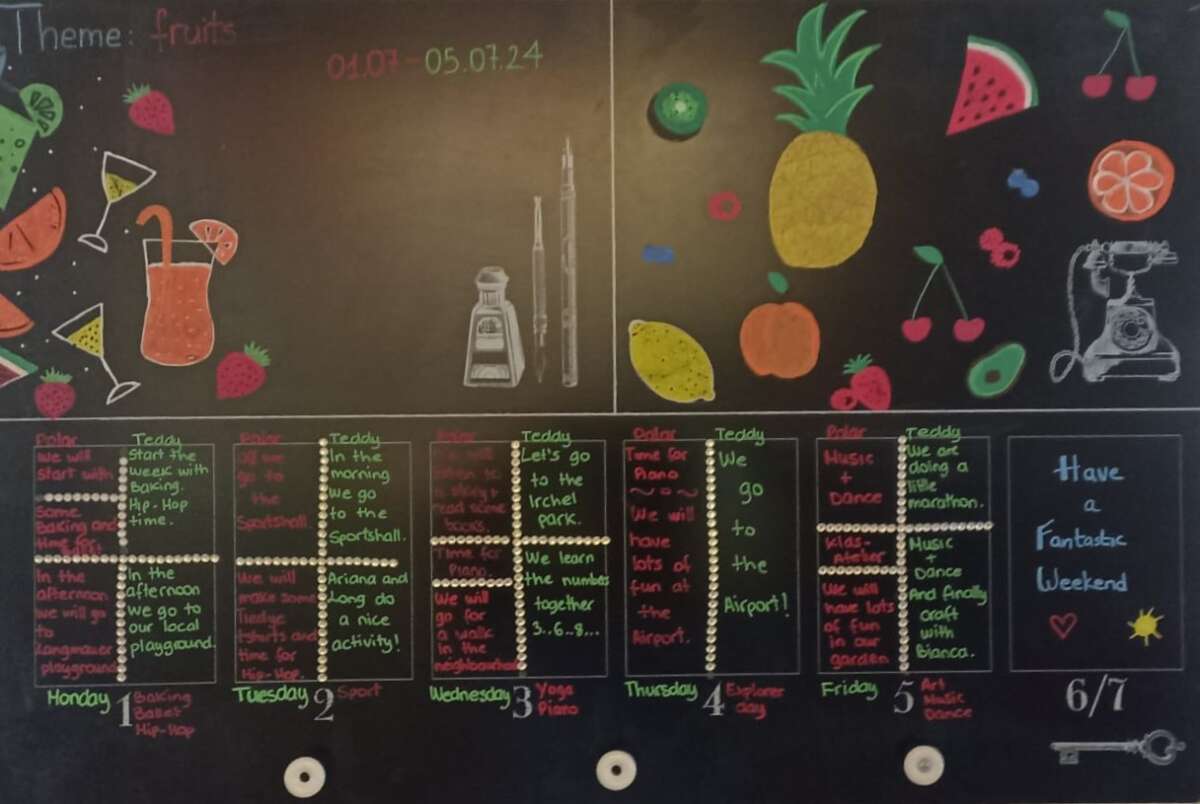 Theme: fruits
01.07 - 05.07.24
Polar
We will
start with
some
Baking and
time for
In the
afternoon
we will go
to
Langmauer
playground
Teddy
Start the
week with
Baking.
Hip-Hop
time.
In the
afternoon
we go to
our local
playground.
Monday 1
Baking
Ballet
Hip-Hop
Polar
go to
the
Sportshall.
We will
make some
Tiedye
tshirts and
time for
Hip-Hop.
Teddy
In the
morning
we go
to the
Sportshall.
Ariana and
Long do
a nice
activity!
Tuesday 2
Sport
Polar
read some
books.
Time for
Piano.
We will
go for
a walk
in the
neighbourhood
Teddy
Let's go
to the
Irchel
park.
We learn
the number
together
3..6..8...
Wednesday 3
Yoga
Piano
Polar
Time for
Piano
~ o ~
We will
have
lots of
fun at
the
Airport.
Teddy
We
go
to
the
Airport!
Thursday 4
Explorer
day
Polar
Music
+
Dance
Klas-
Atelier
We will
have lots
of fun
in our
garden
Teddy
We are
doing a
little
marathon.
Music
+
Dance
And finally
craft
with
Bianca.
Friday 5
Art
Music
Dance
Have
a
Fantastic
Weekend
6/7